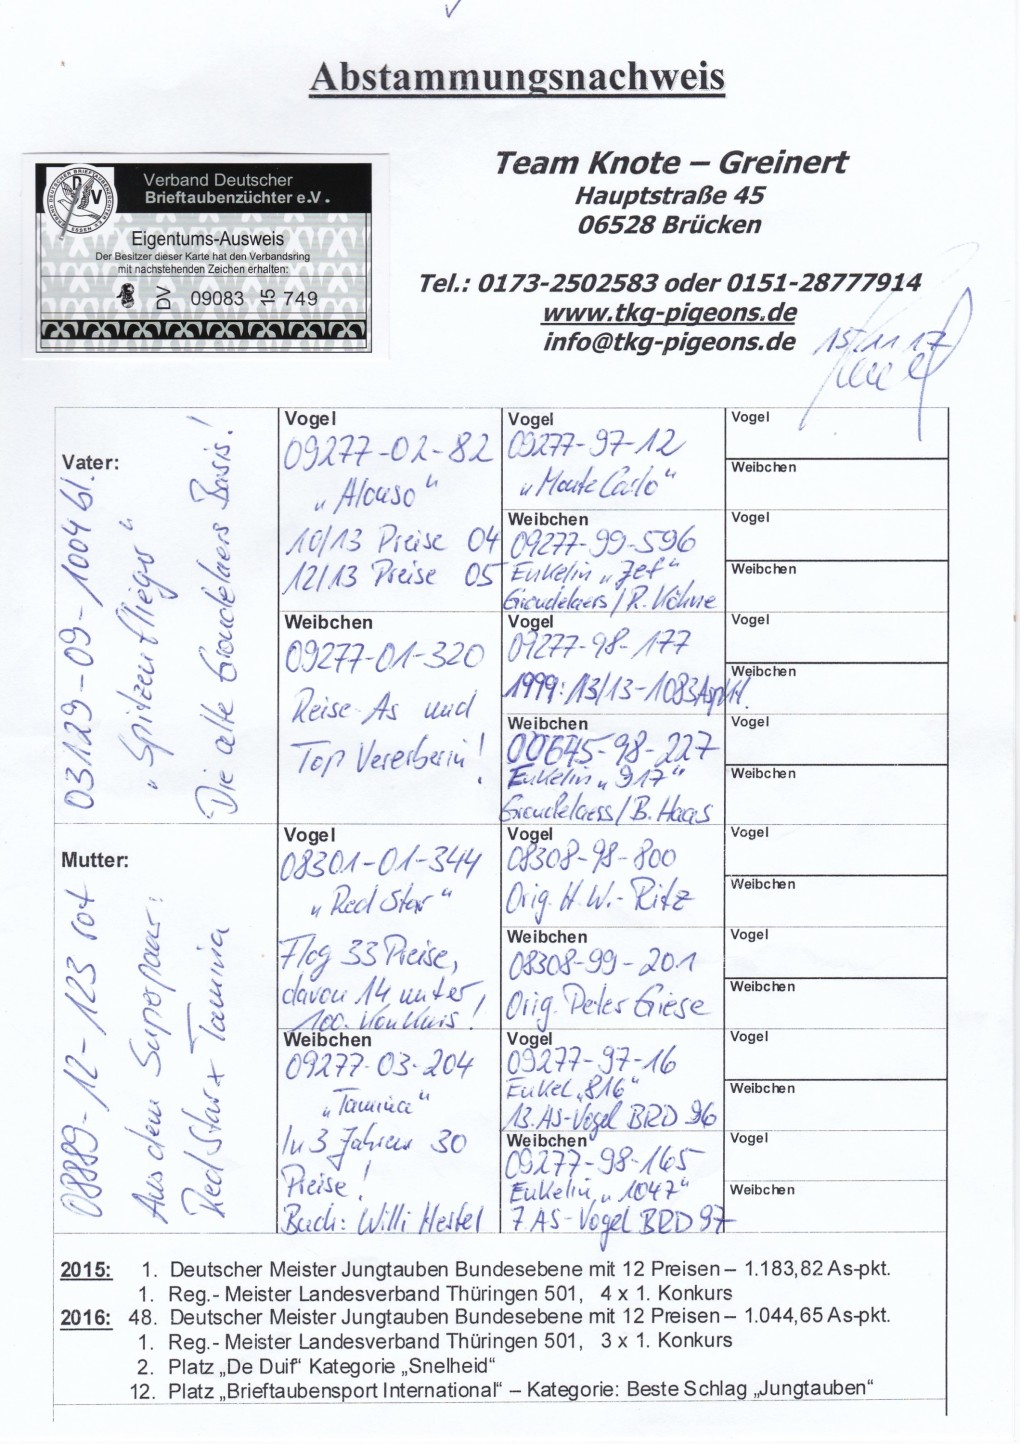 Abstammungsnachweis
Verband Deutscher
Brieftaubenzüchter e.V.
Eigentums-Ausweis
Der Besitzer dieser Karte hat den Verbandsring
mit nachstehenden Zeichen erhalten:
DV 09083 15 749
Team Knote – Greinert
Hauptstraße 45
06528 Brücken
Tel.: 0173-2502583 oder 0151-28777914
www.tkg-pigeons.de
info@tkg-pigeons.de
15.11.17
Vater:
03129-09-1004 bl.
„Spitzenflieger“
Die alte Grondelaers Basis!
Vogel
09277-02-82
„Alonso“
10/13 Preise 04
12/13 Preise 05
Weibchen
09277-01-320
Reise-As und
Top Vererberin!
Vogel
09277-97-12
„Monte Carlo“
Weibchen
09277-99-596
Enkelin „Jef“
Grondelaers/R. Köhne
Vogel
09277-98-177
1999: 13/13-1083 Aspkt.
Weibchen
00675-98-227
Enkelin „917“
Grondelaers/B. Haas
Vogel
Weibchen
Vogel
Weibchen
Vogel
Weibchen
Vogel
Weibchen
Mutter:
08889-12-123 rot
Aus dem Superpaar:
Red Star + Tamina
Vogel
08301-01-344
„Red Star“
Flog 33 Preise,
davon 14 unter
100. Konkurs!
Weibchen
09277-03-204
„Tamina“
In 3 Jahren 30
Preise!
Buch: Willi Hestel
Vogel
08308-98-800
Orig. H.W.-Ritz
Weibchen
08308-99-201
Orig. Peter Giese
Vogel
09277-97-16
Enkel „816“
13. AS-Vogel BRD 96
Weibchen
09277-98-165
Enkelin „1047“
7. AS-Vogel BRD 97
Vogel
Weibchen
Vogel
Weibchen
Vogel
Weibchen
Vogel
Weibchen
2015: 1. Deutscher Meister Jungtauben Bundesebene mit 12 Preisen – 1.183,82 As-pkt.
1. Reg.- Meister Landesverband Thüringen 501, 4 x 1. Konkurs
2016: 48. Deutscher Meister Jungtauben Bundesebene mit 12 Preisen – 1.044,65 As-pkt.
1. Reg.- Meister Landesverband Thüringen 501, 3 x 1. Konkurs
2. Platz „De Duif“ Kategorie „Snelheid“
12. Platz „Brieftaubensport International“ – Kategorie: Beste Schlag „Jungtauben“